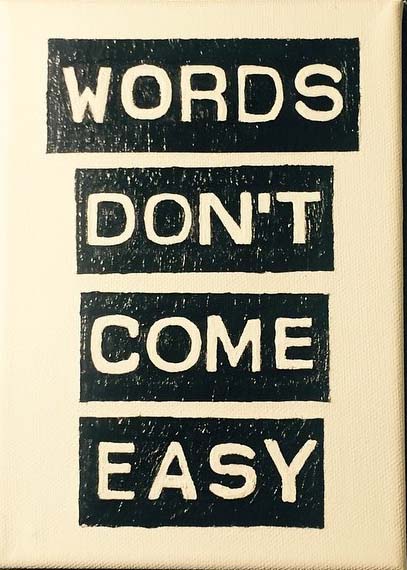 WORDS
DON'T
COME
EASY